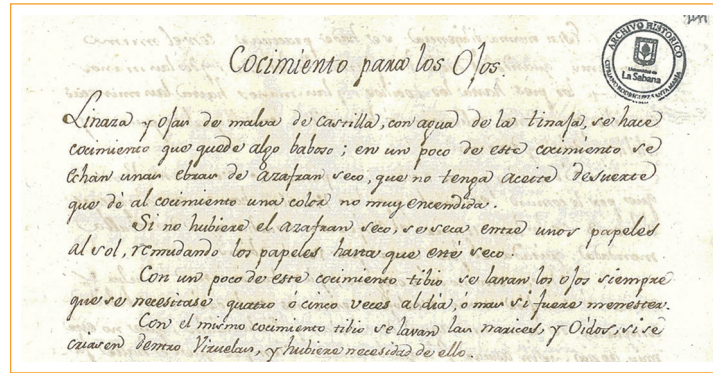 Cocimiento para los Ojos.
ARCHIVO HISTORICO
Universidad de
La Sabana
Linaza y ojas de malva de Castilla, con agua de la tinaja, se hace
cocimiento que quede algo baboso; en un poco de este cocimiento se
echan unas ebras de azafran seco, que no tenga aceite desuerte
que dè al cocimiento una color no muy encendida.
Si no hubiere el azafran seco, se seca entre unos papeles
al sol, remudando los papeles hasta que estè seco.
Con un poco de este cocimiento tibio se lavan los ojos siempre
que se necesitase quatro o cinco veces al dia, ó mas si fuere menester.
Con el mismo cocimiento tibio se lavan las narices, y Oidos, si se
criasen dentro Viruelas, y hubiere necesidad de ello.